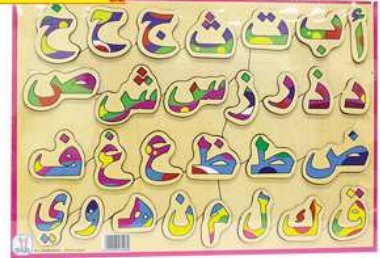 أ ب ت ث ج ح خ
د ذ ر ز س ش ص
ض ط ظ ع غ ف
ق ك ل م ن ه و ي